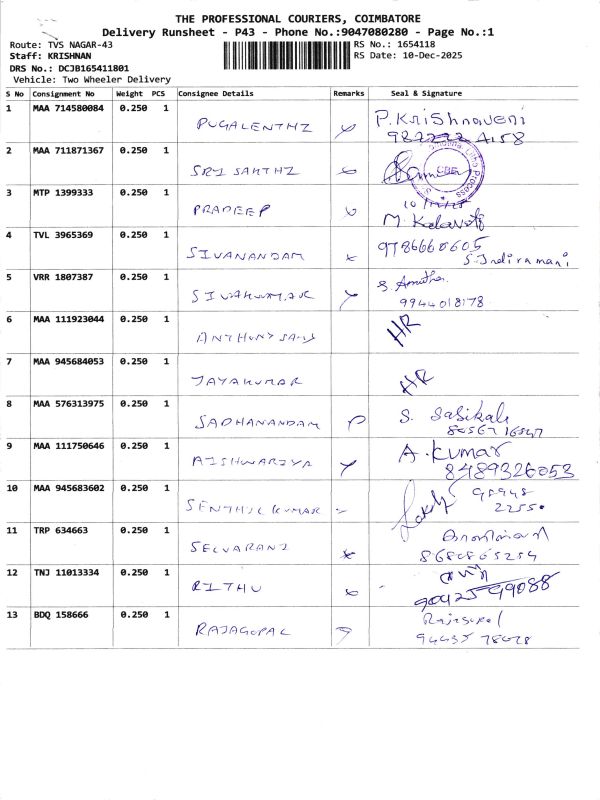 THE PROFESSIONAL COURIERS, COIMBATORE
Delivery Runsheet - P43 - Phone No.:9047080280 - Page No.:1
Route: TVS NAGAR-43 RS No.: 1654118
Staff: KRISHNAN RS Date: 10-Dec-2025
DRS No.: DCJB165411801
Vehicle: Two Wheeler Delivery
S No Consignment No Weight PCS Consignee Details Remarks Seal & Signature
1 MAA 714580084 0.250 1 PUGALENTHI P.KriShnaveni
4158
2 MAA 711871367 0.250 1 SRI SAKTHI
CBE
3 MTP 1399333 0.250 1 PRADEEP
M. Kalavathi
4 TVL 3965369 0.250 1 SIVANANDAM 9786660605
S.Indiramani
5 VRR 1807387 0.250 1 SIVAKUMAR S. Amutha
9944018178
6 MAA 111923044 0.250 1 ANTHONY HR
7 MAA 945684053 0.250 1 JAYAKUMAR HR
8 MAA 576313975 0.250 1 SADHANANDAM S. Sasikala
9 MAA 111750646 0.250 1 AISHWARIYA A.Kumar
8489326053
10 MAA 945683602 0.250 1 SENTHIL KUMAR
11 TRP 634663 0.250 1 SELVARANI
8680865254
12 TNJ 11013334 0.250 1 RITHU
9042599088
13 BDQ 158666 0.250 1 RAJAGOPAL Rajagopal